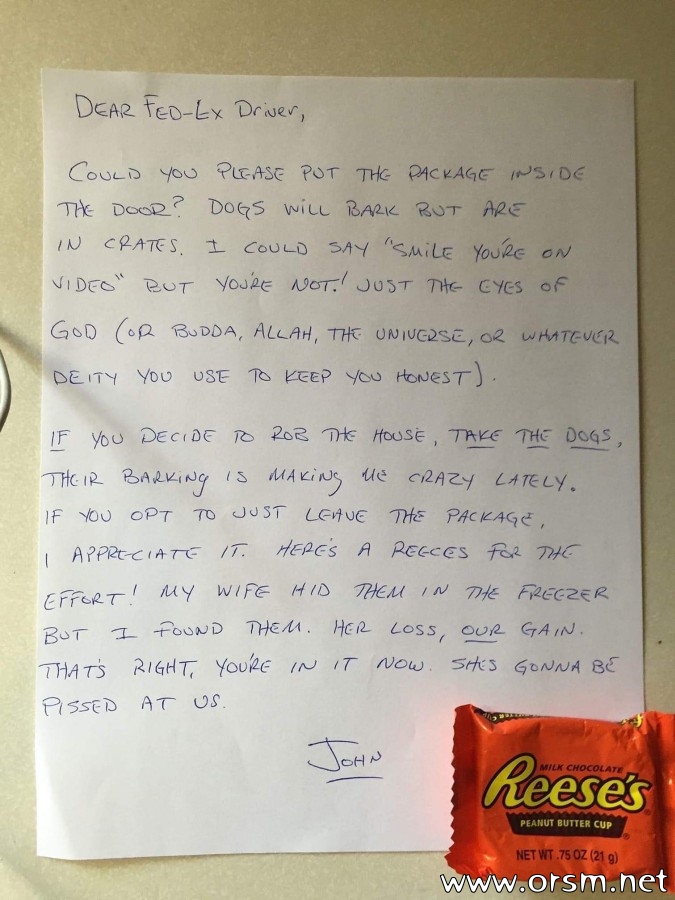 DEAR FED-EX DRIVER,
COULD YOU PLEASE PUT THE PACKAGE INSIDE
THE DOOR? DOGS WILL BARK BUT ARE
IN CRATES. I COULD SAY "SMILE YOU'RE ON
VIDEO" BUT YOU'RE NOT! JUST THE EYES OF
GOD (OR BUDDA, ALLAH, THE UNIVERSE, OR WHATEVER
DEITY YOU USE TO KEEP YOU HONEST).
IF YOU DECIDE TO ROB THE HOUSE, TAKE THE DOGS,
THEIR BARKING IS MAKING ME CRAZY LATELY.
IF YOU OPT TO JUST LEAVE THE PACKAGE,
I APPRECIATE IT. HERE'S A REECES FOR THE
EFFORT! MY WIFE HID THEM IN THE FREEZER
BUT I FOUND THEM. HER LOSS, OUR GAIN.
THAT'S RIGHT, YOU'RE IN IT NOW. SHES GONNA BE
PISSED AT US.
JOHN
MILK CHOCOLATE
Reese's
PEANUT BUTTER CUP
NET WT .75 OZ (21 g)
www.orsm.net